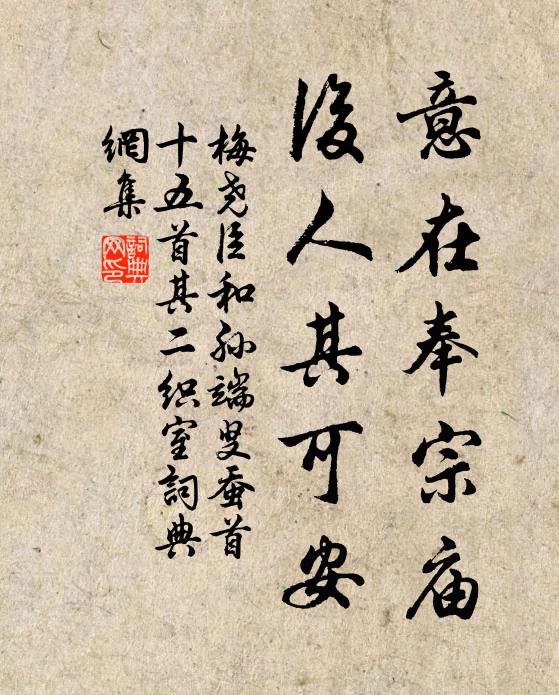 意在奉宗庙
后人其可安
梅尧臣和孙端叟蚕首
十五首其二织室詞典
網集
詞典網印